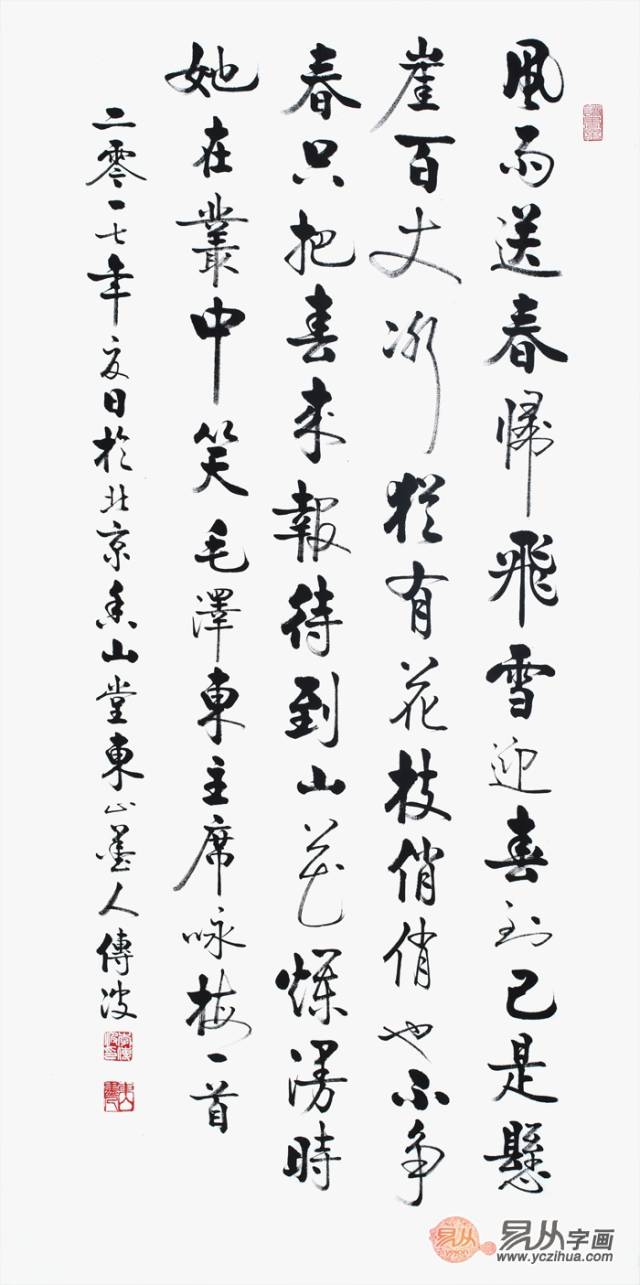 風雨送春歸飛雪迎春到已是懸
崖百丈冰猶有花枝俏俏也不争
春只把春来報待到山花爛漫時
她在叢中笑毛澤東主席咏梅一首
二零一七年夏日於北京香山堂東山墨人傳波
易从
易从字画
www.yczihua.com